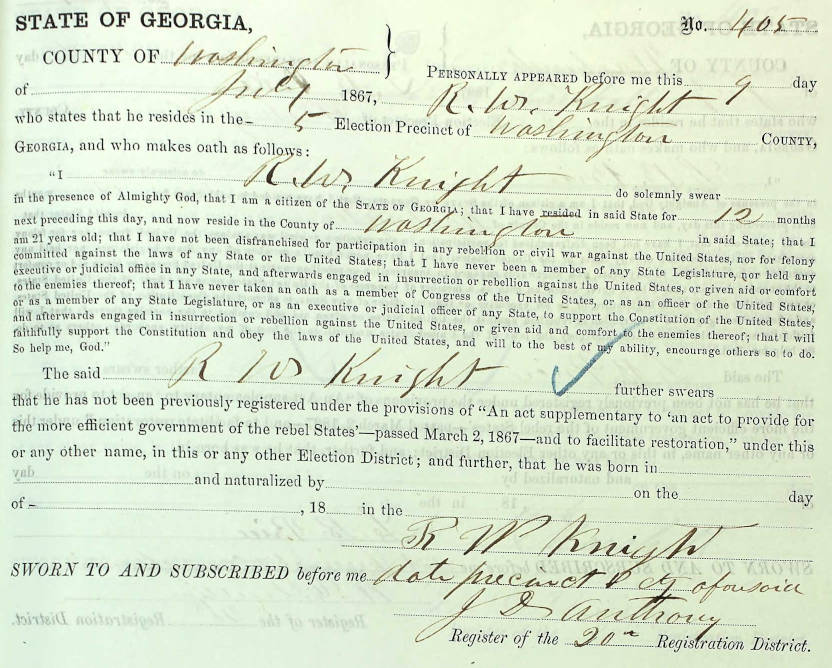 STATE OF GEORGIA, No. 405
COUNTY OF Washington } PERSONALLY APPEARED before me this 9 day
of July 1867, R. W. Knight
who states that he resides in the 5 Election Precinct of Washington COUNTY,
GEORGIA, and who makes oath as follows:
"I R. W. Knight do solemnly swear
in the presence of Almighty God, that I am a citizen of the STATE OF GEORGIA; that I have resided in said State for 12 months
next preceding this day, and now reside in the County of Washington in said State; that I
am 21 years old; that I have not been disfranchised for participation in any rebellion or civil war against the United States, nor for felony
committed against the laws of any State or the United States; that I have never been a member of any State Legislature, nor held any
executive or judicial office in any State, and afterwards engaged in insurrection or rebellion against the United States, or given aid or comfort
to the enemies thereof; that I have never taken an oath as a member of Congress of the United States, or as an officer of the United States,
or as a member of any State Legislature, or as an executive or judicial officer of any State, to support the Constitution of the United States,
and afterwards engaged in insurrection or rebellion against the United States, or given aid and comfort to the enemies thereof; that I will
faithfully support the Constitution and obey the laws of the United States, and will to the best of my ability, encourage others so to do.
So help me, God."
The said R W Knight further swears
that he has not been previously registered under the provisions of "An act supplementary to 'an act to provide for
the more efficient government of the rebel States'—passed March 2, 1867—and to facilitate restoration," under this
or any other name, in this or any other Election District; and further, that he was born in
and naturalized by on the day
of , 18 in the
R W Knight
SWORN TO AND SUBSCRIBED before me date precinct & cty aforesaid
J D Anthony
Register of the 20th Registration District.